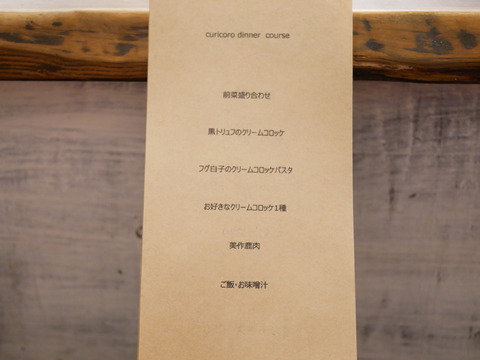 curicoro dinner course
前菜盛り合わせ
黒トリュフのクリームコロッケ
フグ白子のクリームコロッケパスタ
お好きなクリームコロッケ1種
美作鹿肉
ご飯・お味噌汁